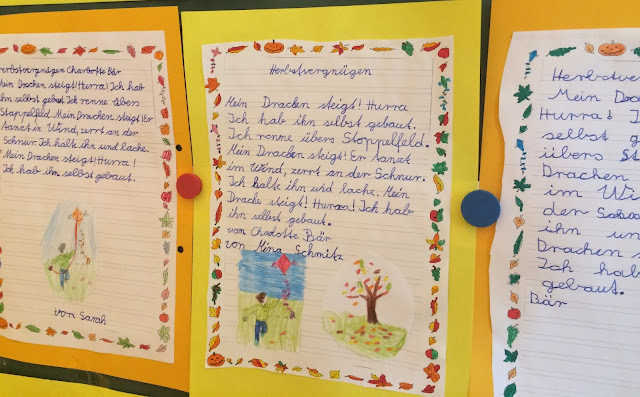 Herbstvergnügen Charlotte Bär
Mein Drachen steigt! Hurra! Ich hab
ihn selbst gebaut. Ich renne übers
Stoppelfeld. Mein Drachen steigt! Er
tanzt im Wind, zerrt an der
Schnur. Ich halt ihn und lache.
Mein Drachen steigt! Hurra!
Ich hab ihn selbst gebaut.
von Sarah
Herbstvergnügen
Mein Drachen steigt! Hurra
Ich hab ihn selbst gebaut.
Ich renne übers Stoppelfeld.
Mein Drachen steigt! Er tanzt
im Wind, zerrt an der Schnur.
Ich halte ihn und lache. Mein
Drache steigt! Hurraa! Ich hab
ihn selbst gebaut.
von Charlotte Bär
von Mina Schmitz
Herbstver
Mein Dra
Hurra! I
selbst g
übers St
Drachen
im Wi
der Schnu
ihn un
Drachen s
Ich hab
gebaut.
Bär